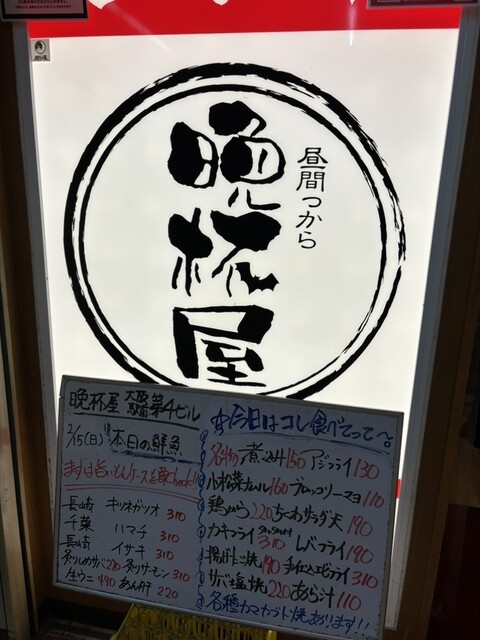 昼間っから
晩杯屋
晩杯屋 大阪駅前第4ビル
2/15(日) 本日の鮮魚
まずは旨いもんケースを要check!!
長崎 キツネガツオ 310
千葉 ハマチ 310
長崎 イサキ 310
炙りしめサバ 220 炙りサーモン 310
生ウニ 490 あん肝 220
今日はコレ食べてって〜。
名物 煮込み 150 アジフライ 130
小松菜ナムル 160 ブロッコリーマヨ 110
鶏から 220 ちくわサラダ天 190
カキフライ 310 レバフライ 190
揚げ 190 手仕込エビフライ 310
サバ塩焼 220 あら汁 110
各種カマカブト焼あります!!